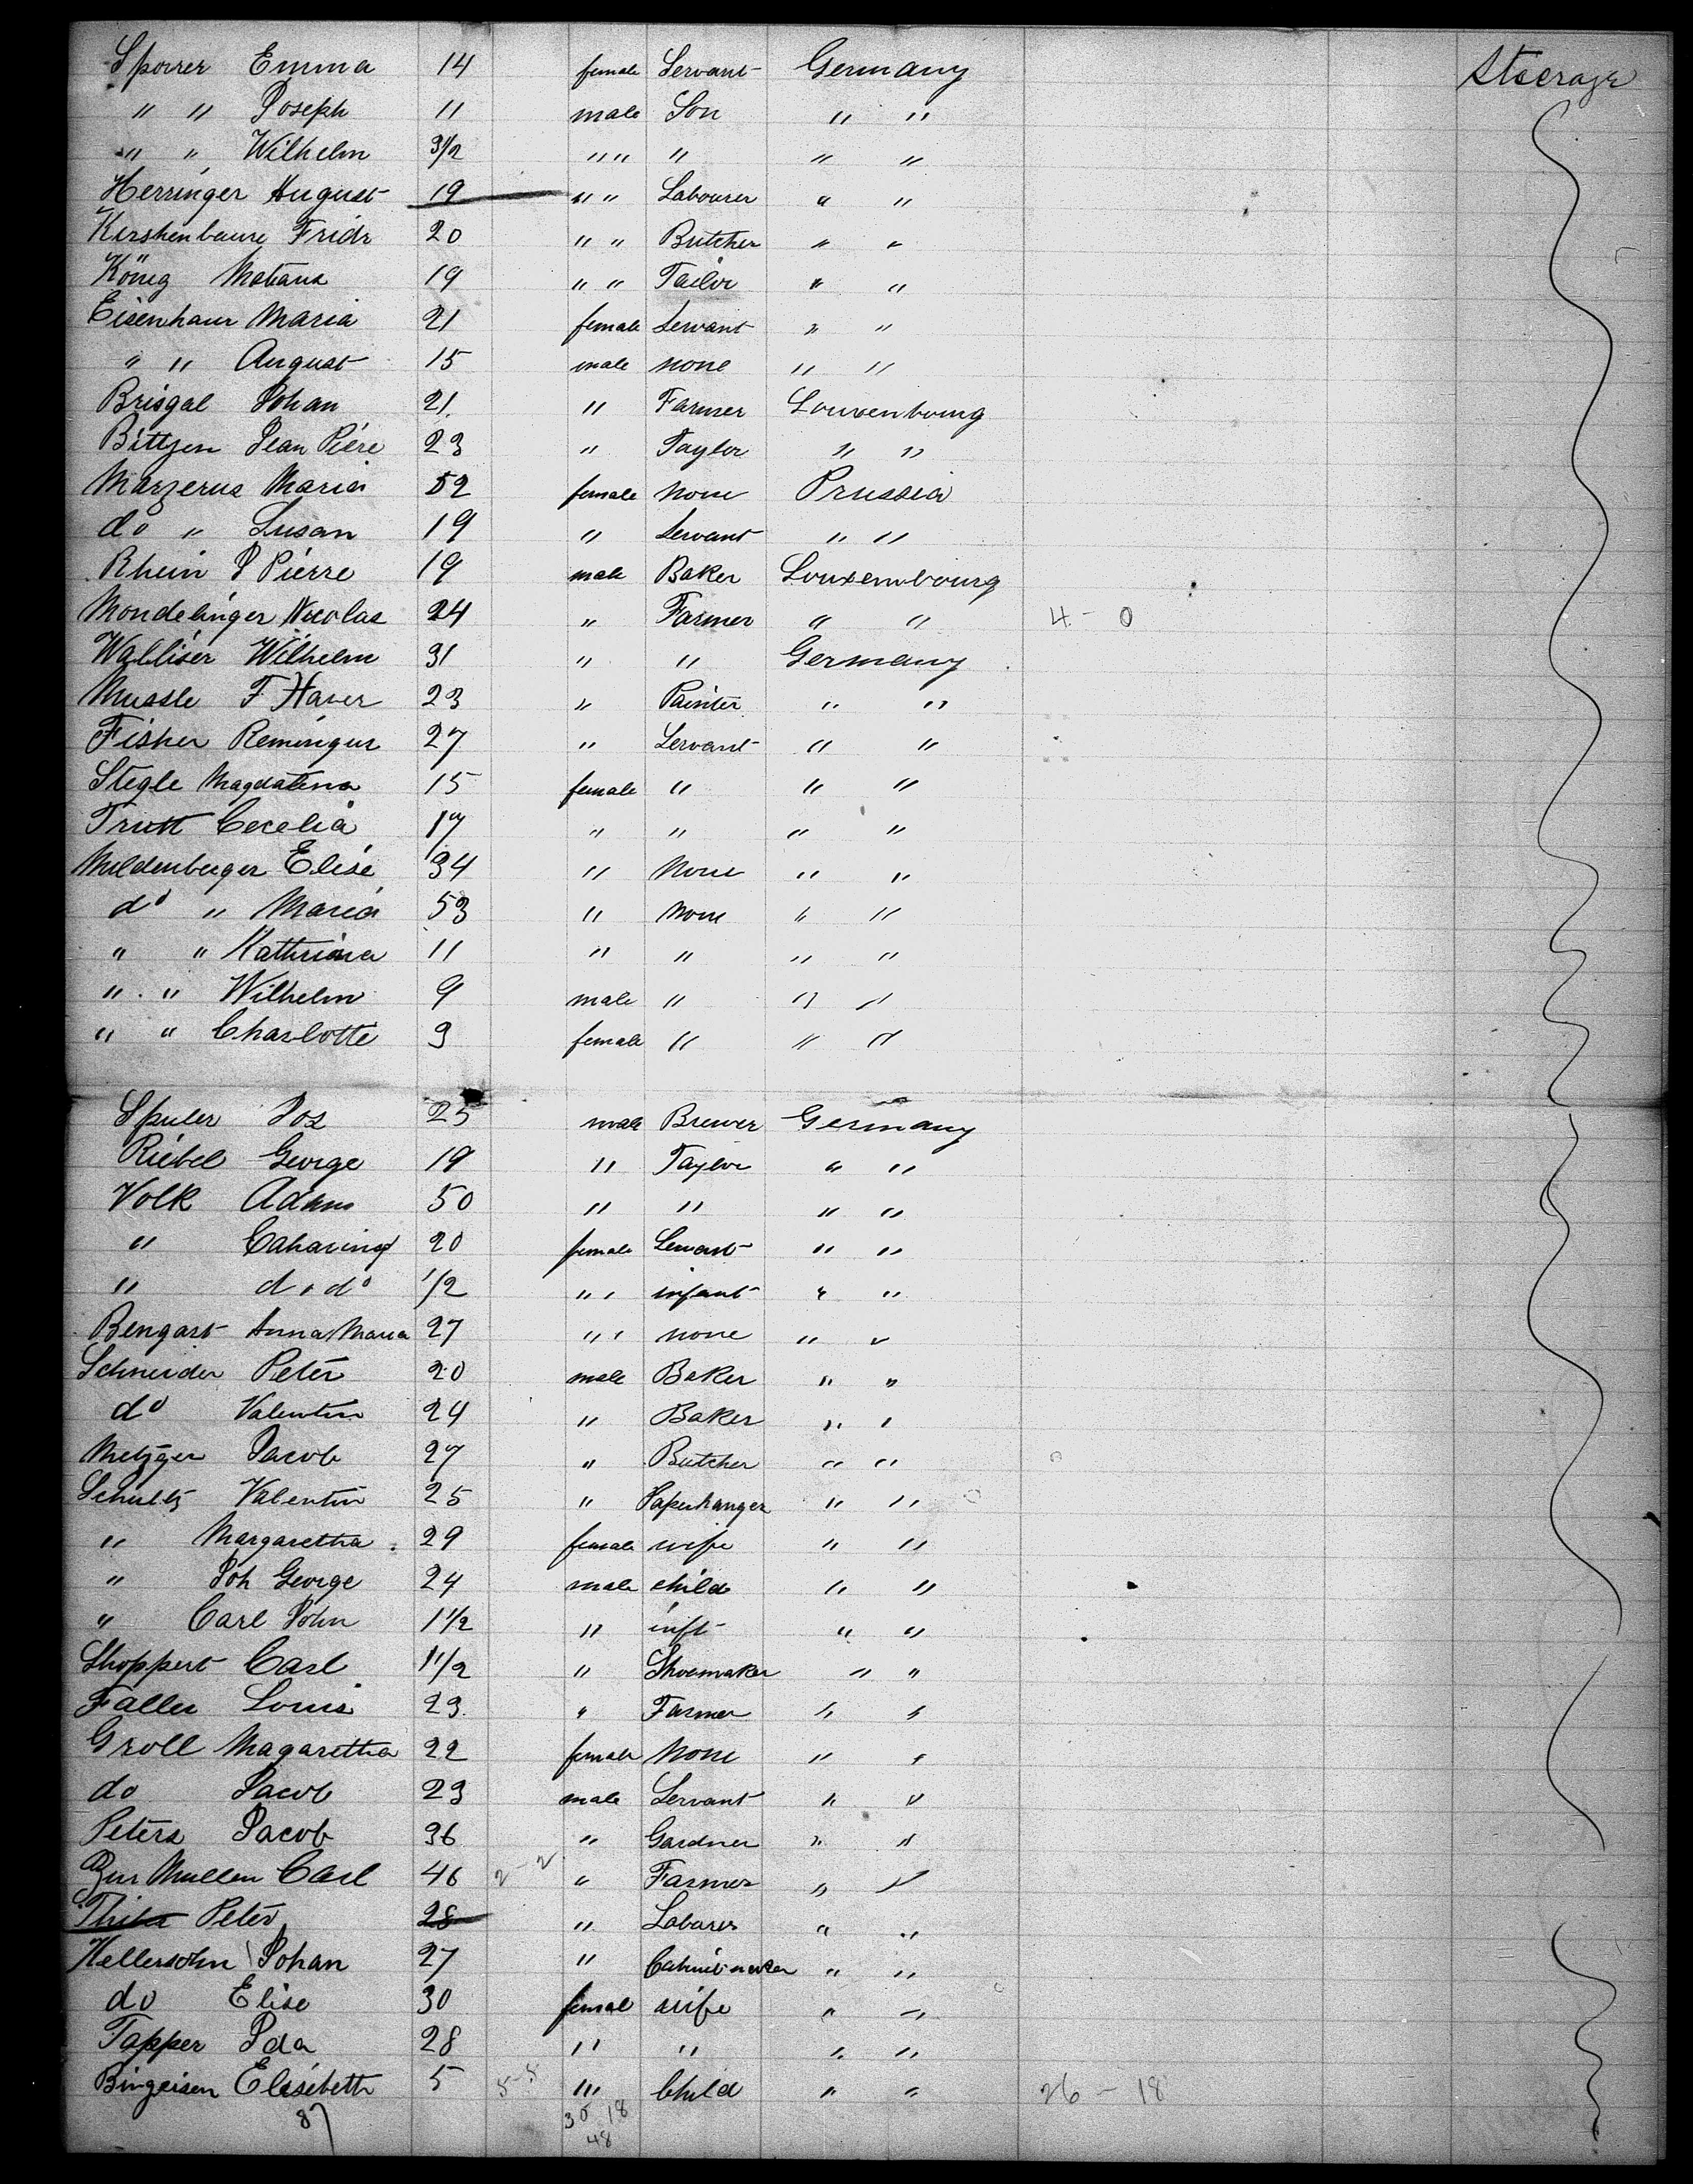 Sporrer Emma 14 female Servant Germany Steerage
" " Joseph 11 male Son " "
" " Wilhelm 3½ " " " " "
Herringer August 19 " " Labourer " "
Kirshenbaure Fridr 20 " " Butcher " "
König 19 " " Tailor " "
Eisenhaur Maria 21 female Servant " "
" " August 15 male none " "
Brisgal Johan 21 " Farmer Louxenbourg
Bittgen Jean Piere 23 " Taylor " "
Margerus Maria 52 female none Prussia
do " Susan 19 " Servant " "
Rhein J Pierre 19 male Baker Louxembourg
Mondelinger Nicolas 24 " Farmer " " 4 - 0
Walliser Wilhelm 31 " " Germany
Mussle F Haver 23 " Painter " "
Fisher Remingur 27 " Servant " "
Stegle Magdalena 15 female " " "
Trutt Cecelia 17 " " " "
Mildenberger Elise 34 " None " "
do " Maria 53 " none " "
" " Kathrina 11 " " " "
" " Wilhelm 9 male " " "
" " Charlotte 3 female " " "
Spuler Jos 25 male Brewer Germany
Riebel George 19 " Taylor " "
Volk Adam 50 " " " "
" Catharina 20 female Servant " "
" do do 1/2 " " infant " "
Bengart Anna Maria 27 " " none " "
Schneider Peter 20 male Baker " "
do Valentin 24 " Baker " "
Metzger Jacob 27 " Butcher " "
Schultz Valentin 25 " Paperhanger " "
" Margaretha 29 female wife " "
" Joh George 24 male child " "
" Carl John 1½ " inft " "
Shoppert Carl 11/2 " Shoemaker " "
Faller Louis 23 " Farmer " "
Groll Magaretha 22 female None " "
do Jacob 23 male Servant " "
Peters Jacob 36 " Gardner " "
Zur Mullen Carl 46 2-2 " Farmer " "
Peter 28 " Labarer " "
Kellersohn Johan 27 " Cabinetmaker " "
do Elise 30 female wife " "
Topper Ida 28 " " " "
Bingeisen Elisibeth 5 5-5 " Child " " 26 - 18
87 30 18
48